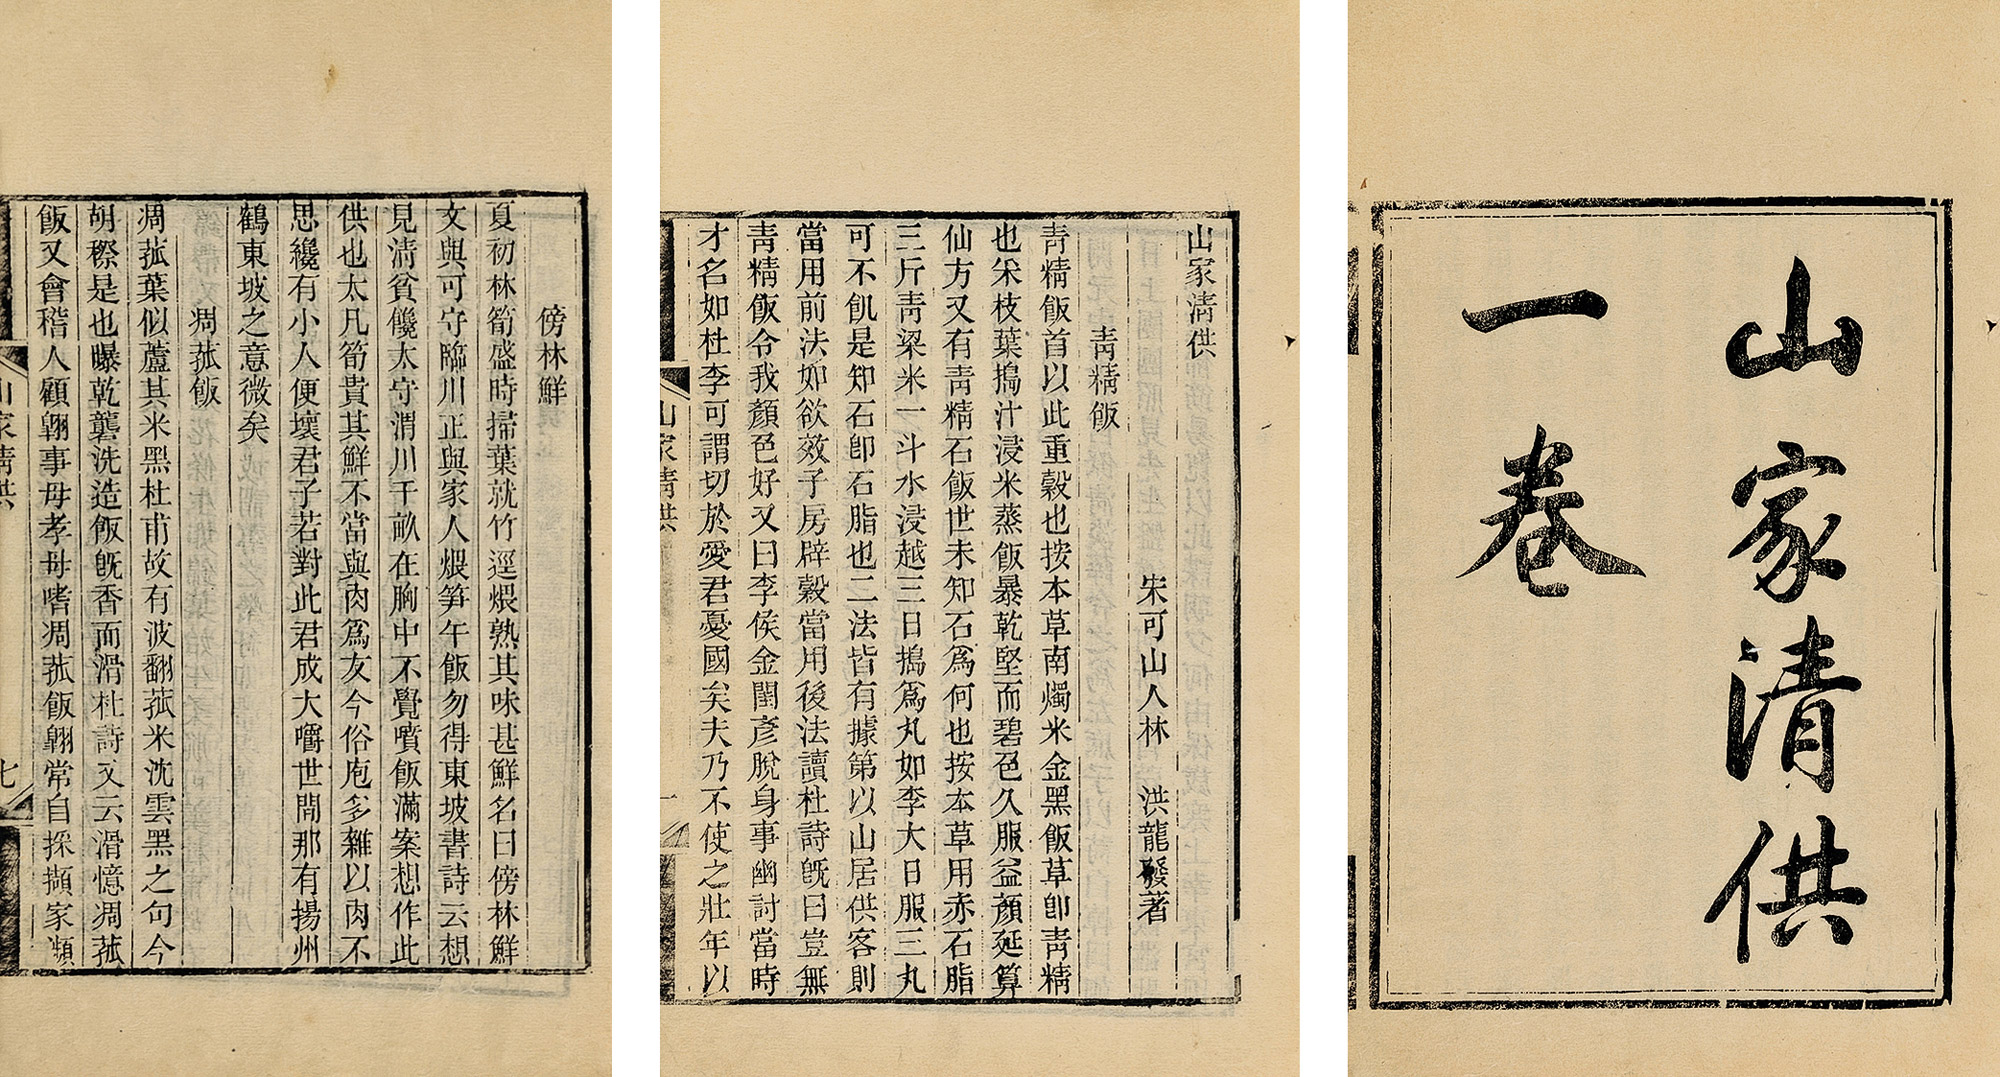 山家清供
一卷
山家清供
宋可山人林 洪龍發著
青精飯
青精飯首以此重穀也按本草南燭米金黑飯草卽青精
也采枝葉搗汁浸米蒸飯暴乾堅而碧色久服益顏延算
仙方又有青精石飯世未知石爲何也按本草用赤石脂
三斤青粱米一斗水浸越三日搗爲丸如李大日服三丸
可不飢是知石卽石脂也二法皆有據第以山居供客則
當用前法如欲效子房辟穀當用後法讀杜詩旣曰豈無
青精飯令我顏色好又曰李侯金閨彥脫身事幽討當時
才名如杜李可謂切於愛君憂國矣夫乃不使之壯年以
山家清供
一
傍林鮮
夏初林筍盛時掃葉就竹逕煨熟其味甚鮮名曰傍林鮮
文與可守臨川正與家人煨笋午飯勿得東坡書詩云想
見清貧饞太守渭川千畝在胸中不覺噴飯滿案想作此
供也太凡筍貴其鮮不當與肉爲友今俗庖多雜以肉不
思纔有小人便壞君子若對此君成大嚼世間那有揚州
鶴東坡之意微矣
凋菰飯
凋菰葉似蘆其米黑杜甫故有波翻菰米沈雲黑之句今
胡穄是也曝乾礱洗造飯旣香而滑杜詩又云滑憶凋菰
飯又會稽人顧翱事母孝母嗜凋菰飯翱常自採擷家瀕
山家清供
七